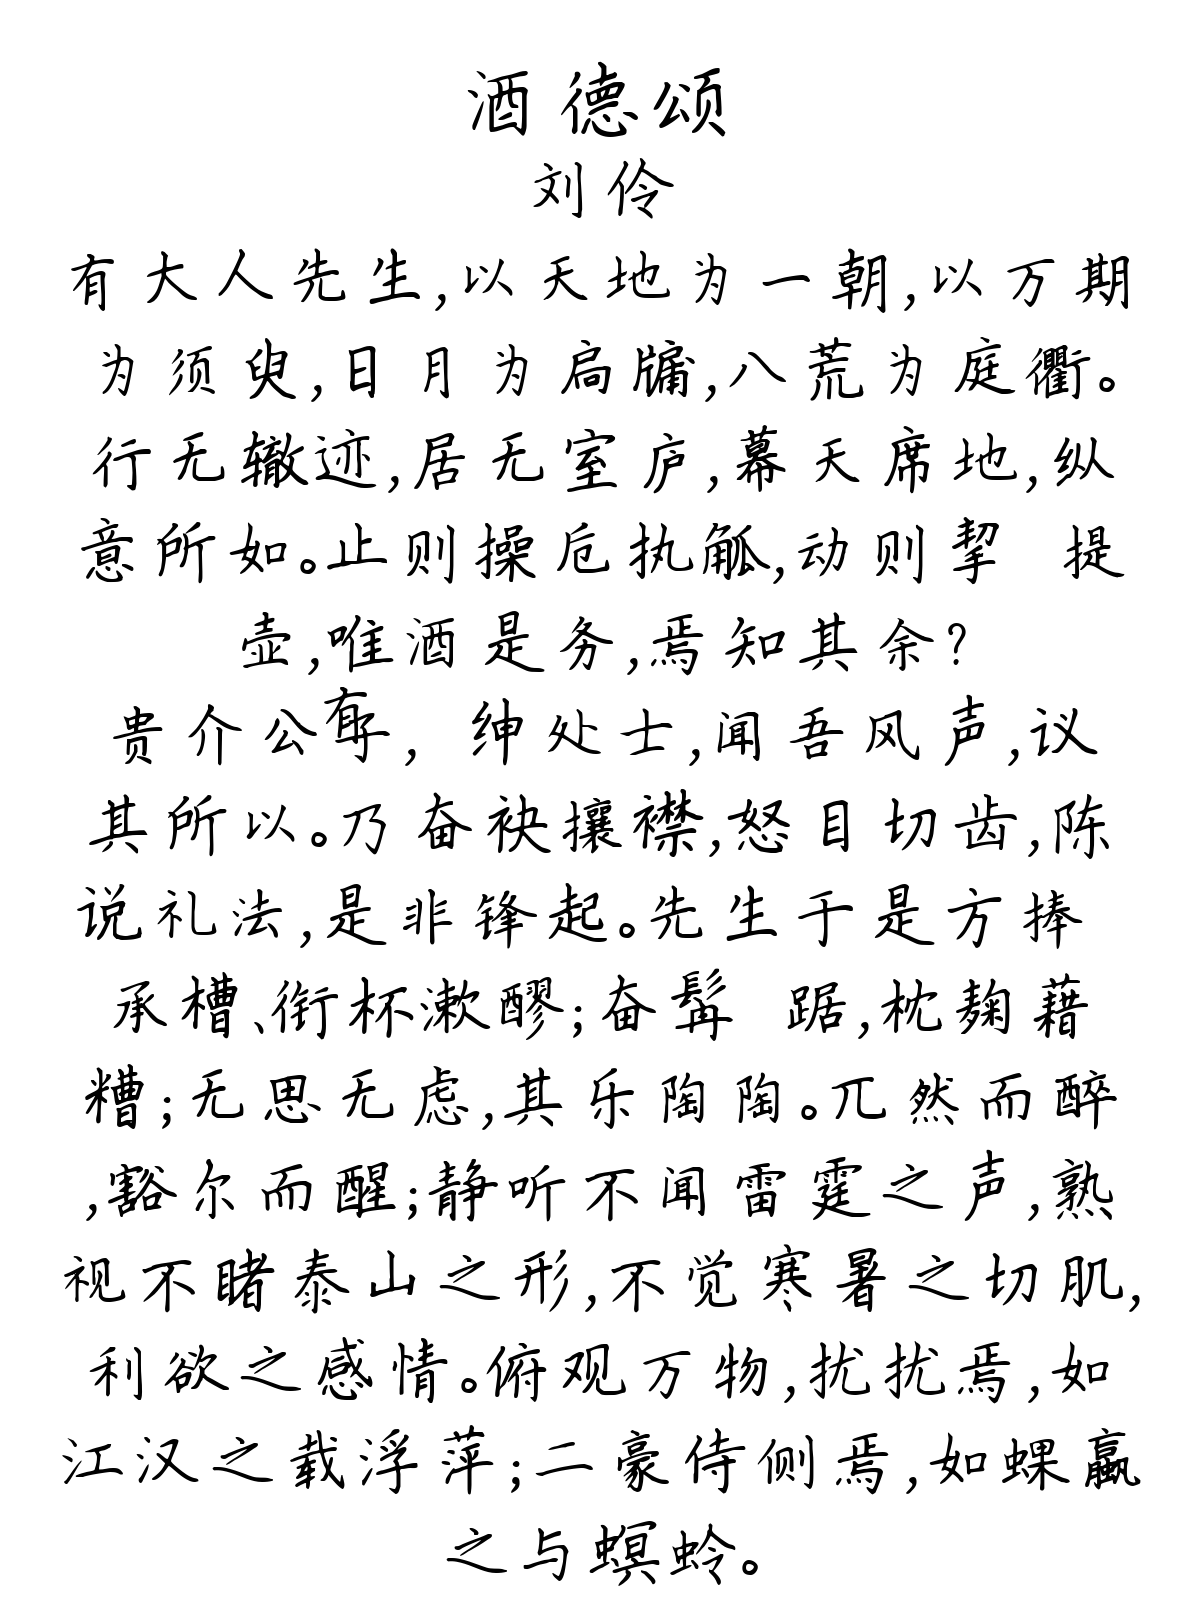 酒德颂
刘伶
有大人先生,以天地为一朝,以万期
为须臾,日月为扃牖,八荒为庭衢。
行无辙迹,居无室庐,幕天席地,纵
意所如。止则操卮执觚,动则挈 提
壶,唯酒是务,焉知其余?
贵介公有子, 绅处士,闻吾风声,议
其所以。乃奋袂攘襟,怒目切齿,陈
说礼法,是非锋起。先生于是方捧
承槽、衔杯漱醪;奋髯 踞,枕麴藉
糟;无思无虑,其乐陶陶。兀然而醉
,豁尔而醒;静听不闻雷霆之声,熟
视不睹泰山之形,不觉寒暑之切肌,
利欲之感情。俯观万物,扰扰焉,如
江汉之载浮萍;二豪侍侧焉,如蜾蠃
之与螟蛉。